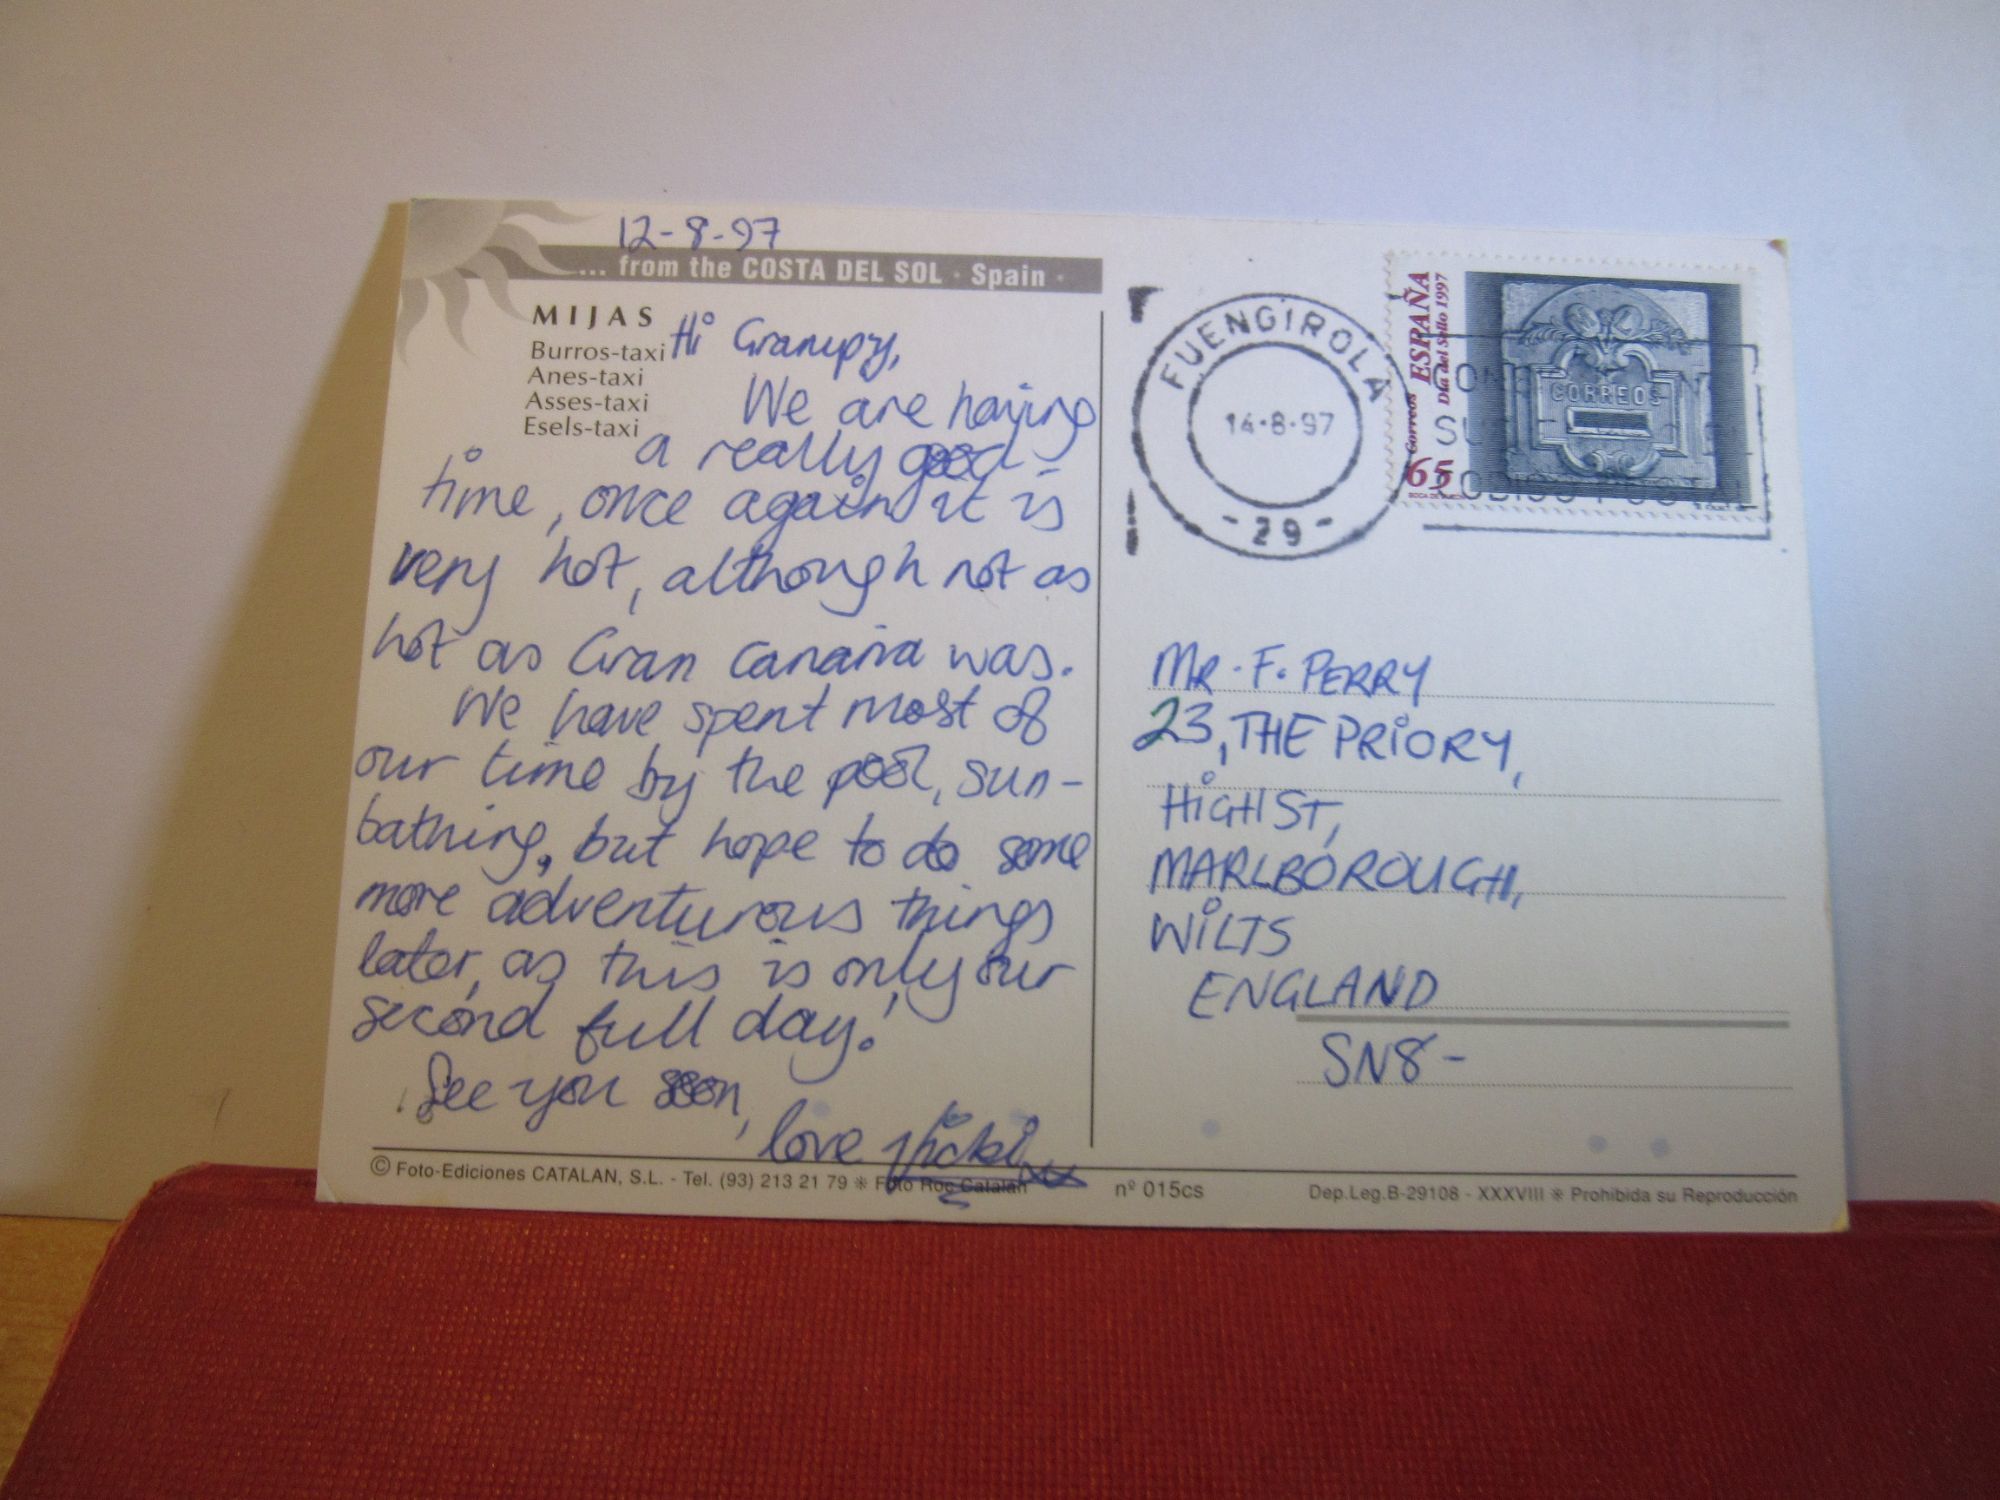 12-8-97
... from the COSTA DEL SOL · Spain ·
MIJAS
Burros-taxi
Anes-taxi
Asses-taxi
Esels-taxi
Hi Grampy,
We are having
a really good
time, once again it is
very hot, although not as
hot as Gran Canaria was.
We have spent most of
our time by the pool, sun-
bathing, but hope to do some
more adventurous things
later, as this is only our
second full day!
See you soon,
love Vicki xx
© Foto-Ediciones CATALAN, S.L. - Tel. (93) 213 21 79 ※ Foto Roc Catalan
nº 015cs
Dep.Leg.B-29108 - XXXVIII ※ Prohibida su Reproducción
FUENGIROLA
14-8-97
- 29 -
Correos ESPAÑA
Día del Sello 1997
65
CORREOS
CODIGO POSTAL
MR. F. PERRY
23, THE PRIORY,
HIGH ST,
MARLBOROUGH,
WILTS
ENGLAND
SN8-